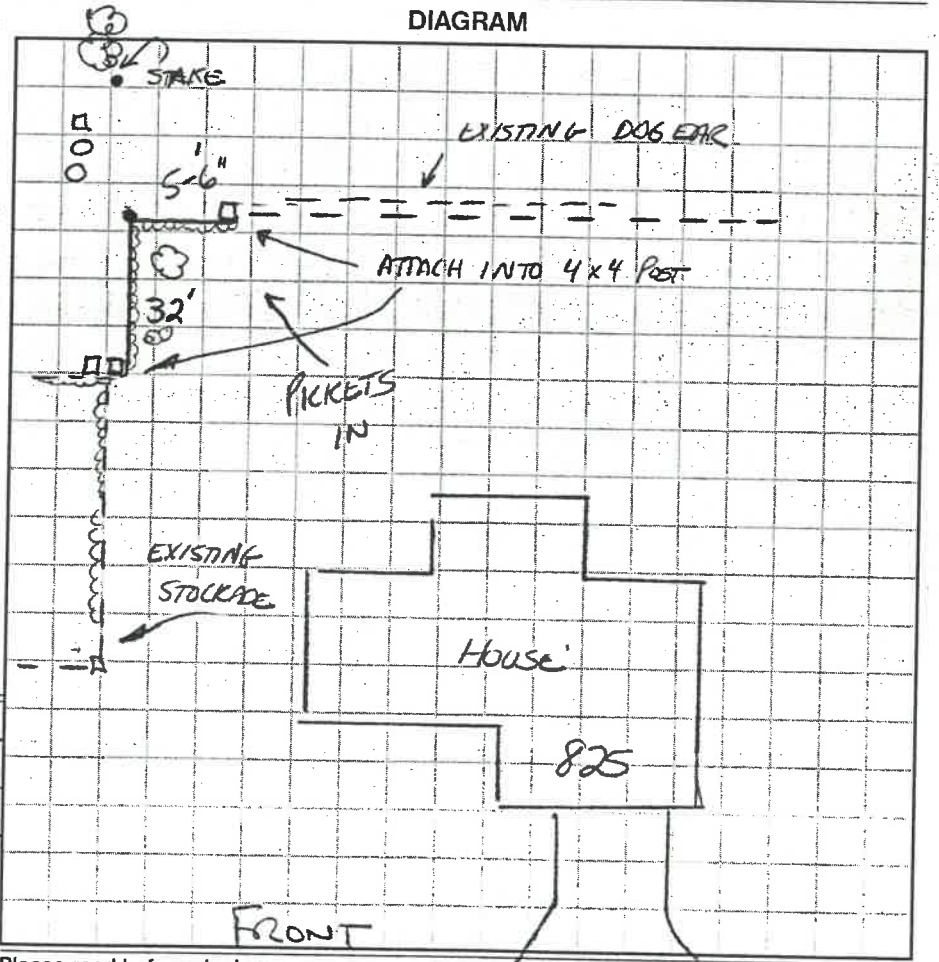 DIAGRAM
STAKE
EXISTING DOG EAR
5'-6"
ATTACH INTO 4x4 POST
32'
PICKETS
IN
EXISTING
STOCKADE
HOUSE
825
FRONT